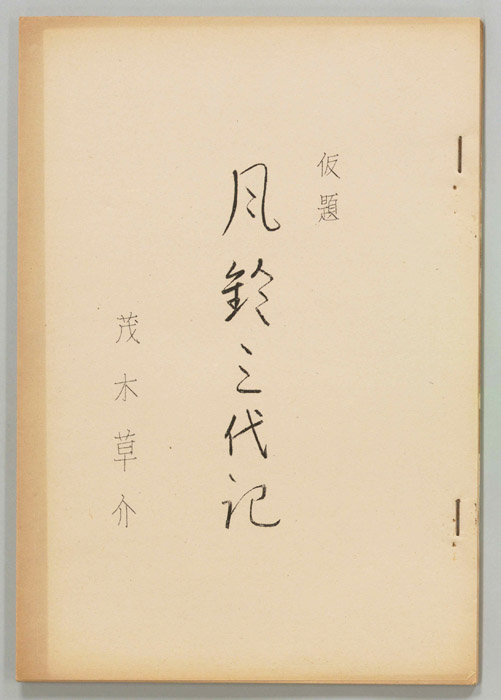 仮題
風鈴三代記
茂木草介